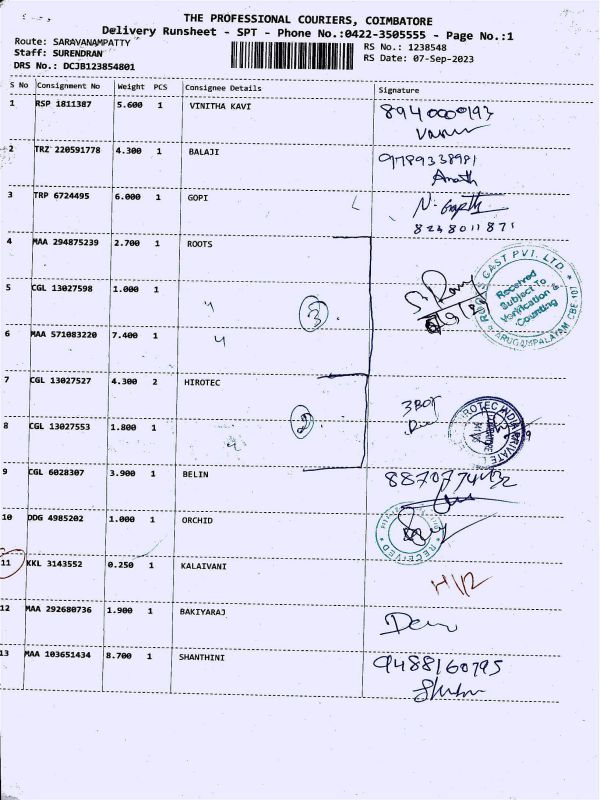 THE PROFESSIONAL COURIERS, COIMBATORE
Delivery Runsheet - SPT - Phone No.:0422-3505555 - Page No.:1
Route: SARAVANAMPATTY
RS No.: 1238548
Staff: SURENDRAN
RS Date: 07-Sep-2023
DRS No.: DCJB123854801
S No Consignment No Weight PCS Consignee Details Signature
1 RSP 1811387 5.600 1 VINITHA KAVI 8940000193
2 TRZ 220591778 4.300 1 BALAJI 9789338981
3 TRP 6724495 6.000 1 GOPI
8248011871
4 MAA 294875239 2.700 1 ROOTS
ROOTS CAST PVT. LTD.
Received
Subject To
Verification &
Counting
ARUGAMPALAYAM CBE
5 CGL 13027598 1.000 1 〃
3
6 MAA 571083220 7.400 1 〃
7 CGL 13027527 4.300 2 HIROTEC
3 BOX
HIROTEC INDIA PRIVATE
8 CGL 13027553 1.800 1 〃
9 CGL 6028307 3.900 1 BELIN
10 DDG 4985202 1.000 1 ORCHID
RECEIVED
11 KKL 3143552 0.250 1 KALAIVANI
12 MAA 292680736 1.900 1 BAKIYARAJ
13 MAA 103651434 8.700 1 SHANTHINI 9488160795